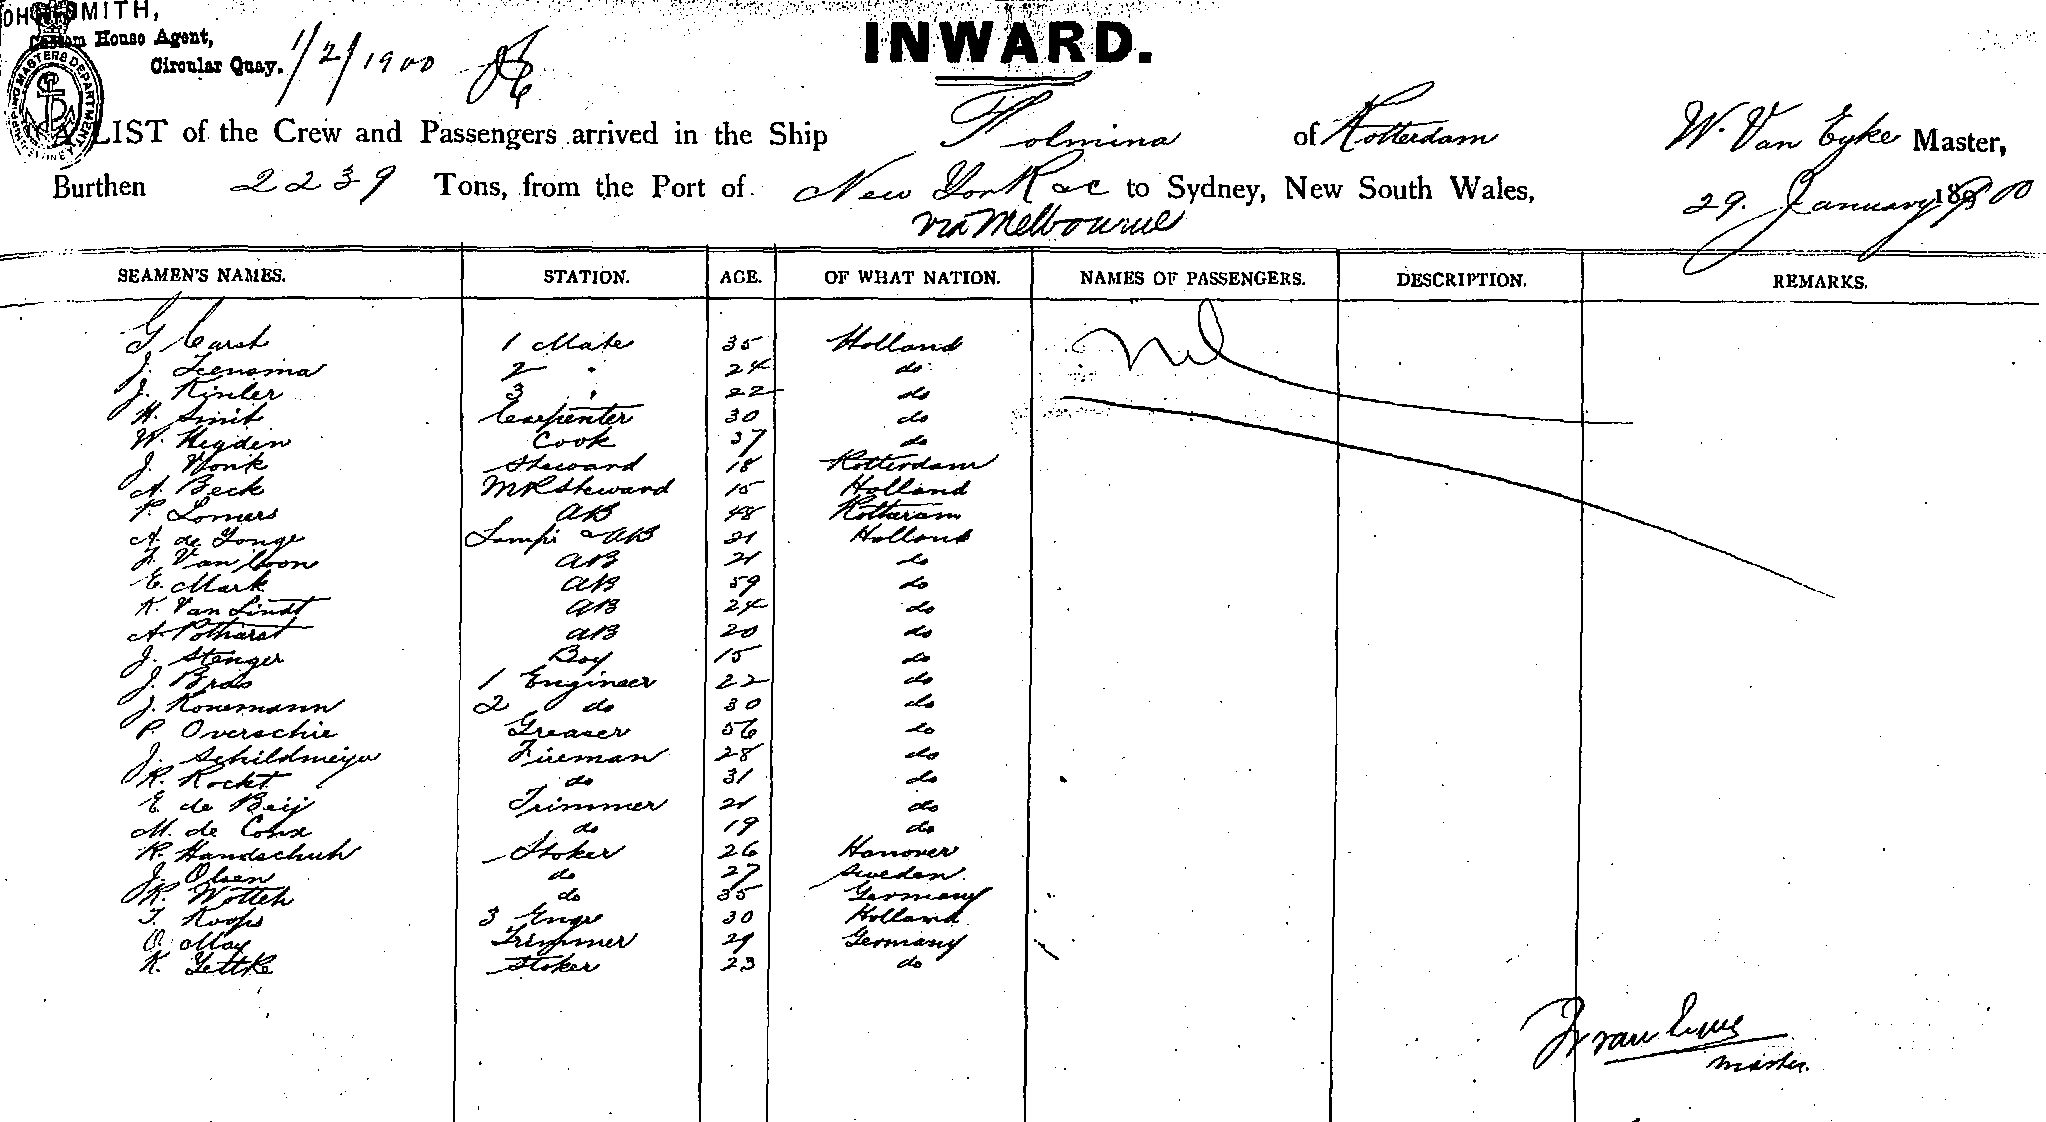 SMITH,
Custom House Agent,
Circular Quay. 1/2/1900
INWARD.
SHIPPING MASTERS DEPARTMENT SYDNEY
A LIST of the Crew and Passengers arrived in the Ship Folmina of Rotterdam W. Van Eyke Master,
Burthen 2239 Tons, from the Port of New York &c to Sydney, New South Wales, 29. January 1900
via Melbourne
SEAMEN'S NAMES. STATION. AGE. OF WHAT NATION. NAMES OF PASSENGERS. DESCRIPTION. REMARKS.
G Carst 1 Mate 35 Holland nil
J. Feenoma 2 " 24 do
J. Kinler 3 " 22 do
H. Smit Carpenter 30 do
W. Hegden Cook 37 do
J. Vonk Steward 18 Rotterdam
A. Beck MR Steward 15 Holland
P. Lomers AB 48 Rottaram
A. de Jonge Lamps & AB 21 Holland
F. Van Loon AB 21 do
E. Mark AB 59 do
K. Van Lindt AB 24 do
A. Potharst AB 20 do
J. Stenger Boy 15 do
J. Bras 1 Engineer 22 do
J. Konemann 2 do 30 do
P. Overschie Greaser 56 do
J. Schildmeijer Fireman 28 do
R. Rockt do 31 do
E de Beij Trimmer 21 do
M. de Conx do 19 do
R. Handschuh Stoker 26 Hanover
J. Olsen do 27 Sweden.
R. Wotteh do 35 Germany
T. Koops 3 Engr 30 Holland
O. May Trimmer 29 Germany
K. Gettke Stoker 23 do
W van Eyke
master.